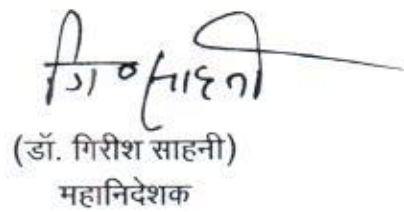 गि॰ साहनी
(डॉ. गिरीश साहनी)
महानिदेशक